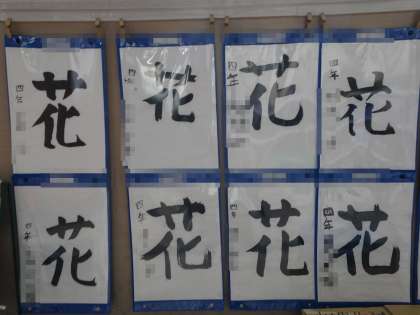 花
四年
花
四年
花
四年
花
四年
花
四年
花
四年
花
四年
花
四年